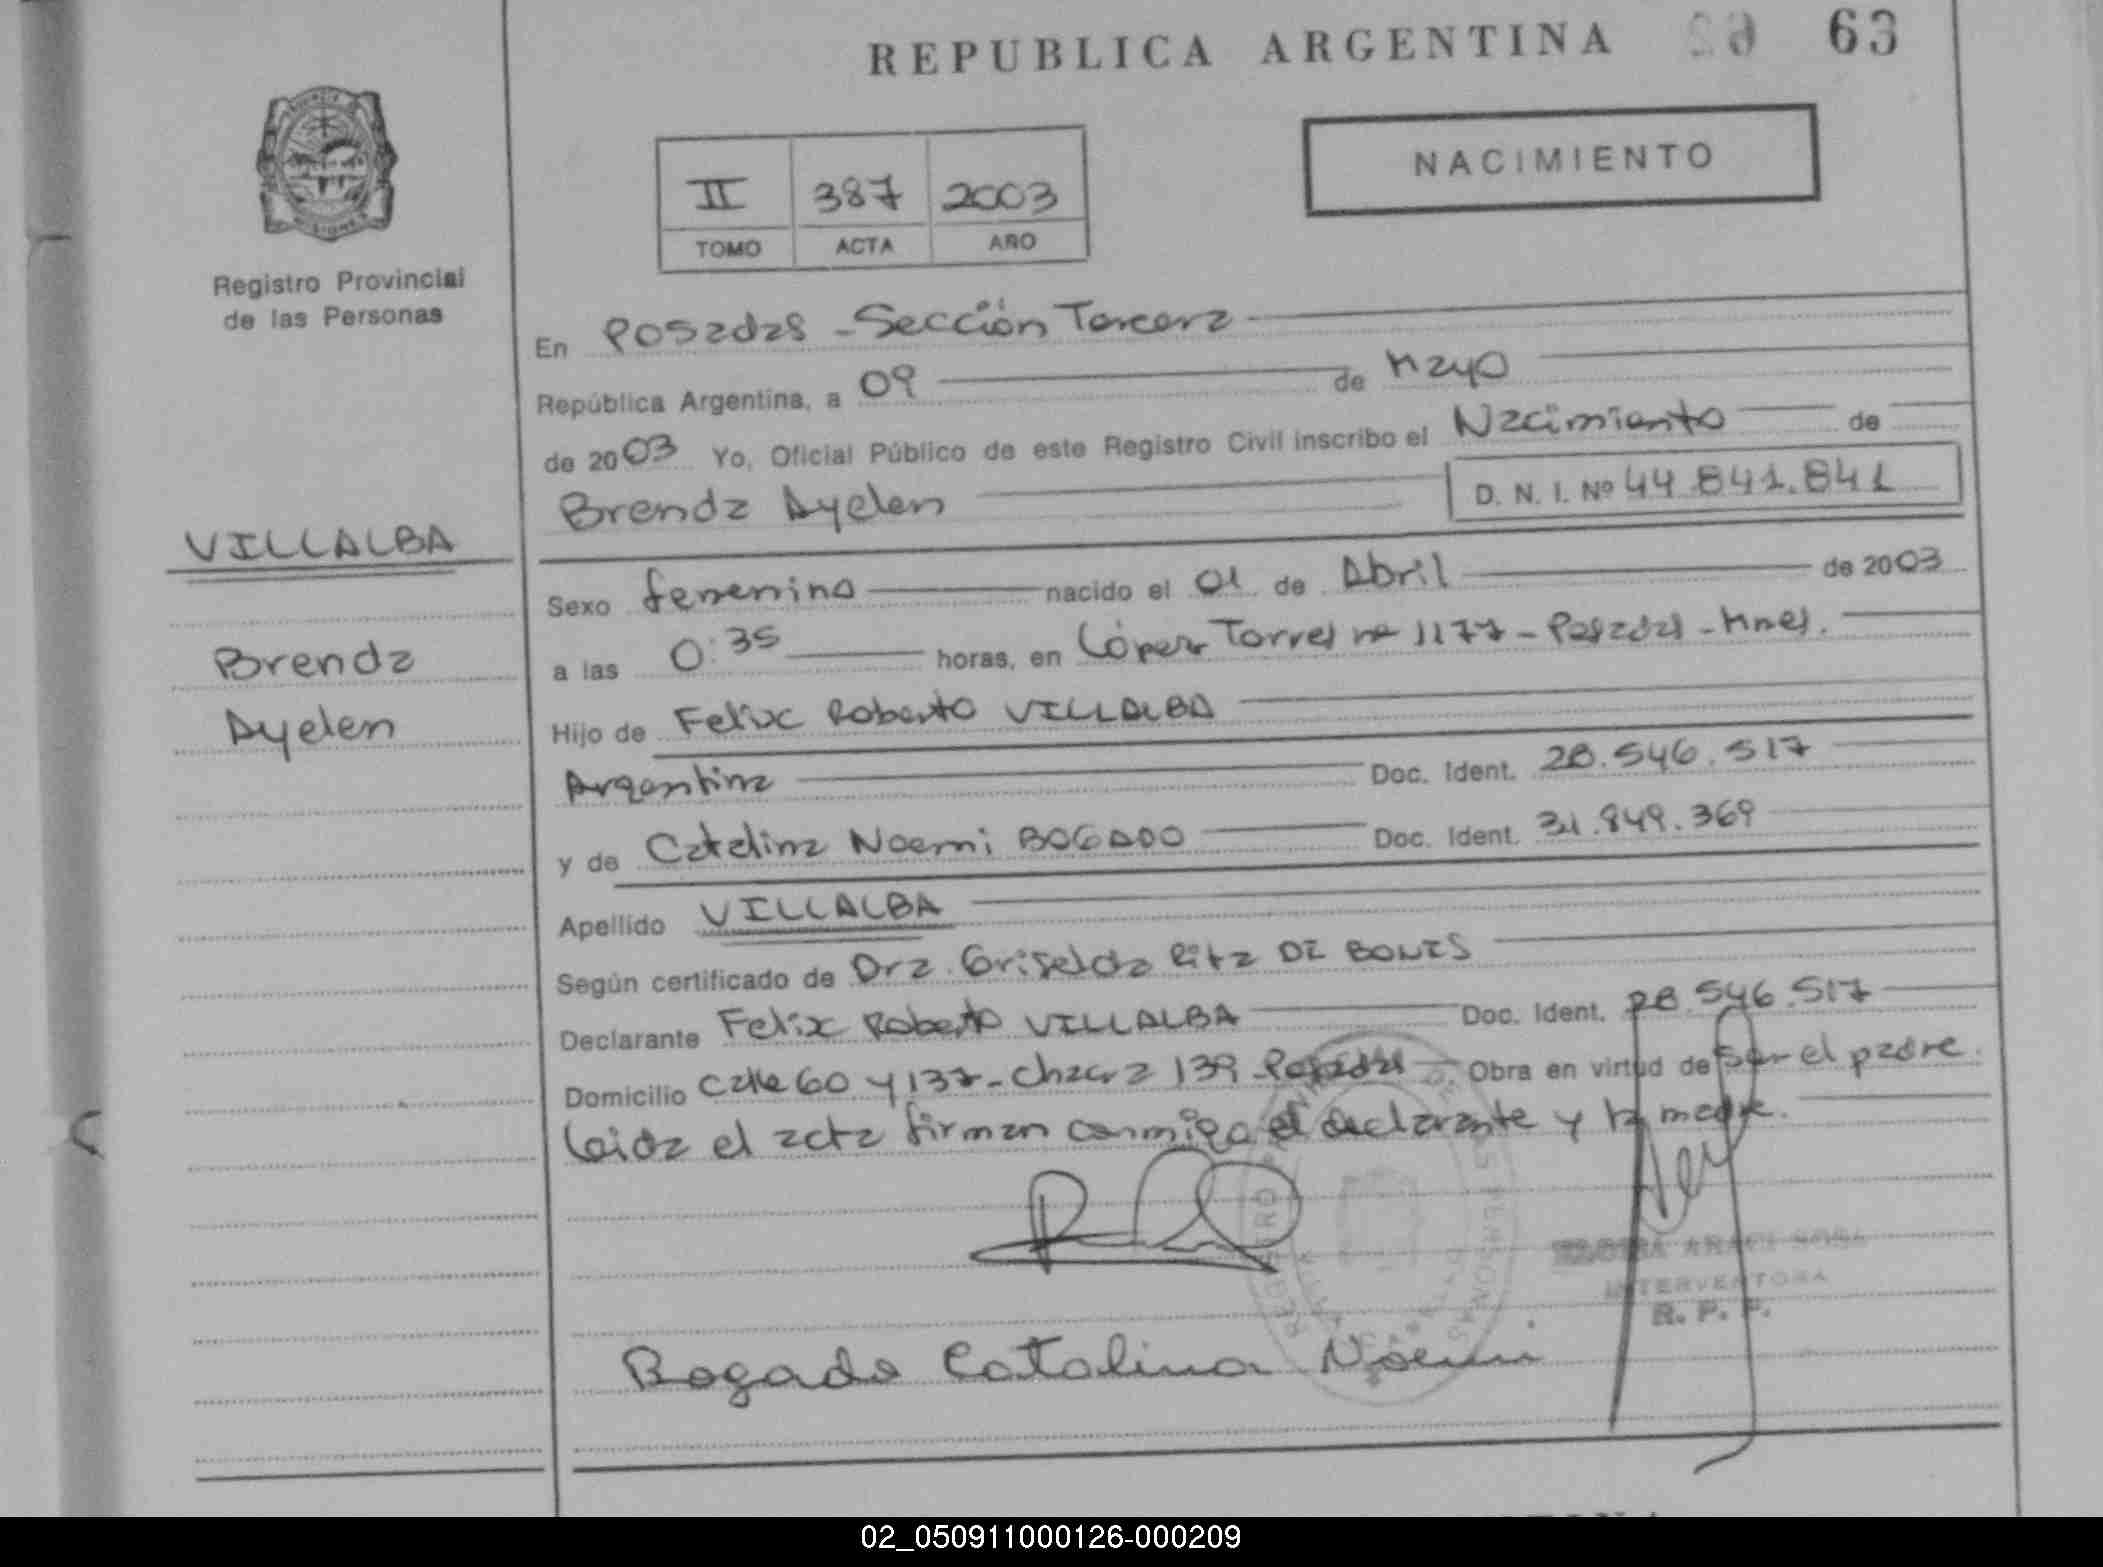 REPUBLICA ARGENTINA 63
NACIMIENTO
II 387 2003
TOMO ACTA AÑO
Registro Provincial
de las Personas
En Posadas - Sección Tercera
República Argentina, a 09 de Mayo
de 2003 Yo, Oficial Público de este Registro Civil inscribo el Nacimiento de
Brenda Ayelen D. N. I. Nº 44.841.841
VILLALBA
Brenda
Ayelen
Sexo femenino nacido el 01 de Abril de 2003
a las 0:35 horas, en López Torres nº 1177 - Posadas - Mnes.
Hijo de Felix Roberto VILLALBA
Argentina Doc. Ident. 28.546.517
y de Catalina Noemi BOGADO Doc. Ident. 31.849.369
Apellido VILLALBA
Según certificado de Dra. Griselda Rita DE BONIS
Declarante Felix Roberto VILLALBA Doc. Ident. 28.546.517
Domicilio Calle 60 y 137 - Chacra 139 Posadas - Obra en virtud de ser el padre.
Leida el acta firman conmigo el declarante y la madre.
ARACI SOSA
INTERVENTORA
R. P. P.
Bogado Catalina Noemi
02_050911000126-000209